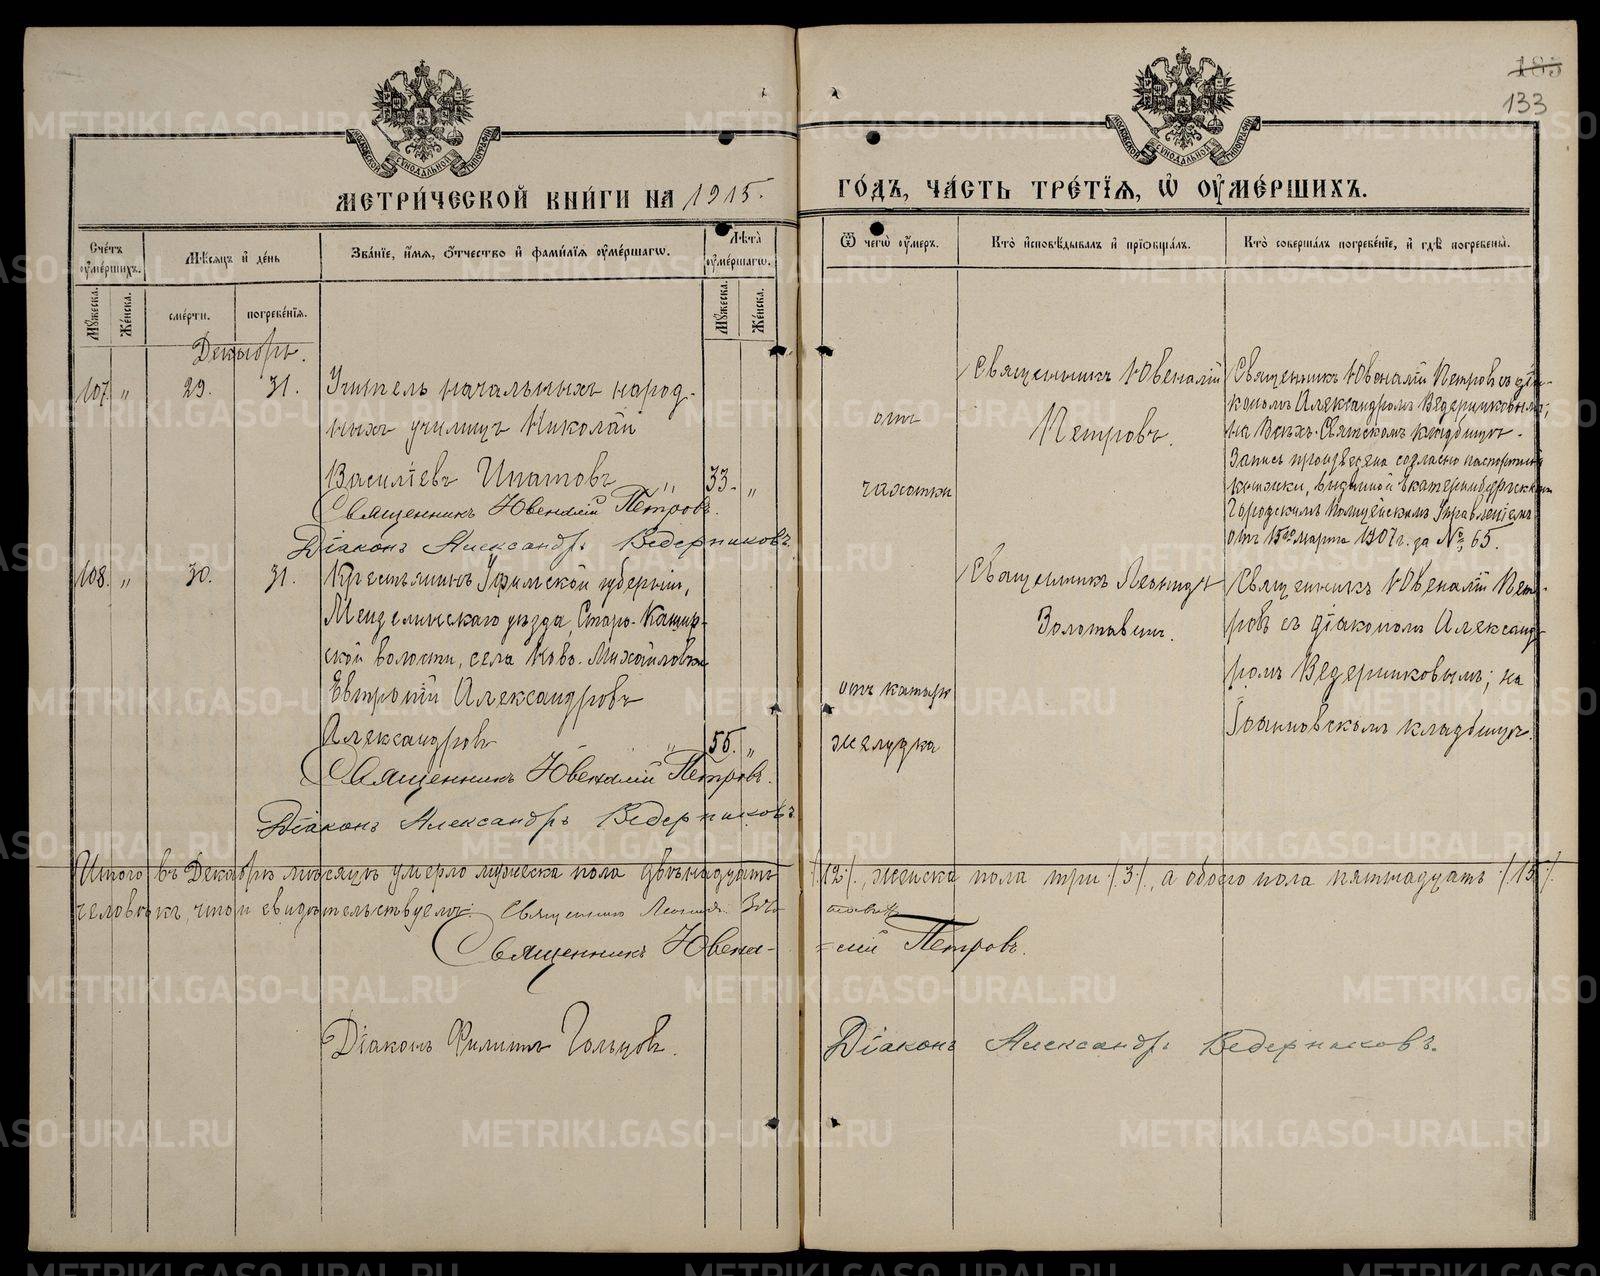 185
133
МЕТРИ́ЧЕСКОЙ КНИ́ГИ НА 1915.
ГО́ДЪ, ЧА́СТЬ ТРЕ́ТІЯ, Ѡ҆ ОУ҆МЕ́РШИХЪ.
Сче́тъ оу҆ме́ршихъ.
Мѣ́сяцъ и҆ де́нь
Зва́нїе, и҆́мя, ѻ҆́тчество и҆ фами́лїя оу҆ме́ршагѡ.
Лѣ́та оу҆ме́ршагѡ.
Ѿ чегѡ̀ оу҆́меръ.
Кто̀ и҆сповѣ́дывалъ и҆ прїѡбща́лъ.
Кто̀ соверша́лъ погребе́нїе, и҆ гдѣ̀ погребены̀.
Мꙋ́жеска.
Же́нска.
сме́рти.
погребе́нїя.
Мꙋ́жеска.
Же́нска.
Декабрь.
107. " 29. 31. Учитель начальныхъ народ-
ныхъ училищъ Николай
Василіевъ Ипатовъ " 33. "
Священникъ Ювеналій Петровъ.
Діаконъ Александръ Ведерниковъ
отъ
чахотки
Священникъ Ювеналій
Петровъ.
Священникъ Ювеналій Петровъ съ діа-
кономъ Александромъ Ведерниковымъ;
на Всѣхъ-Святскомъ кладбищѣ.
Запись произведена согласно паспортной
книжки, выданной Екатеринбургскимъ
Городскимъ Полицейскимъ Управленіемъ
отъ 15го марта 1907 г. за № 65.
108. " 30. 31. Крестьянинъ Уфимской губерніи,
Мензелинскаго уѣзда, Старо-Кашир-
ской волости, села Ново-Михайловки
Евтропій Александровъ
Александровъ " 55. "
Священникъ Ювеналій Петровъ.
Діаконъ Александръ Ведерниковъ
отъ катарра
желудка
Священникъ Леонидъ
Золотавинъ.
Священникъ Ювеналій Пет-
ровъ съ діакономъ Александ-
ромъ Ведерниковымъ; на
Іоанновскомъ кладбищѣ.
Итого въ Декабрѣ мѣсяцѣ умерло мужеска пола двѣнадцать /12/, женска пола три /3/, а обоего пола пятнадцать /15/
человѣкъ, что и свидѣтельствуемъ: Священникъ Леонидъ Золо-
тавинъ
Священникъ Ювена-
=лій Петровъ.
Діаконъ Филиппъ Гольцовъ.
Діаконъ Александръ Ведерниковъ.
METRIKI.GASO-URAL.RU